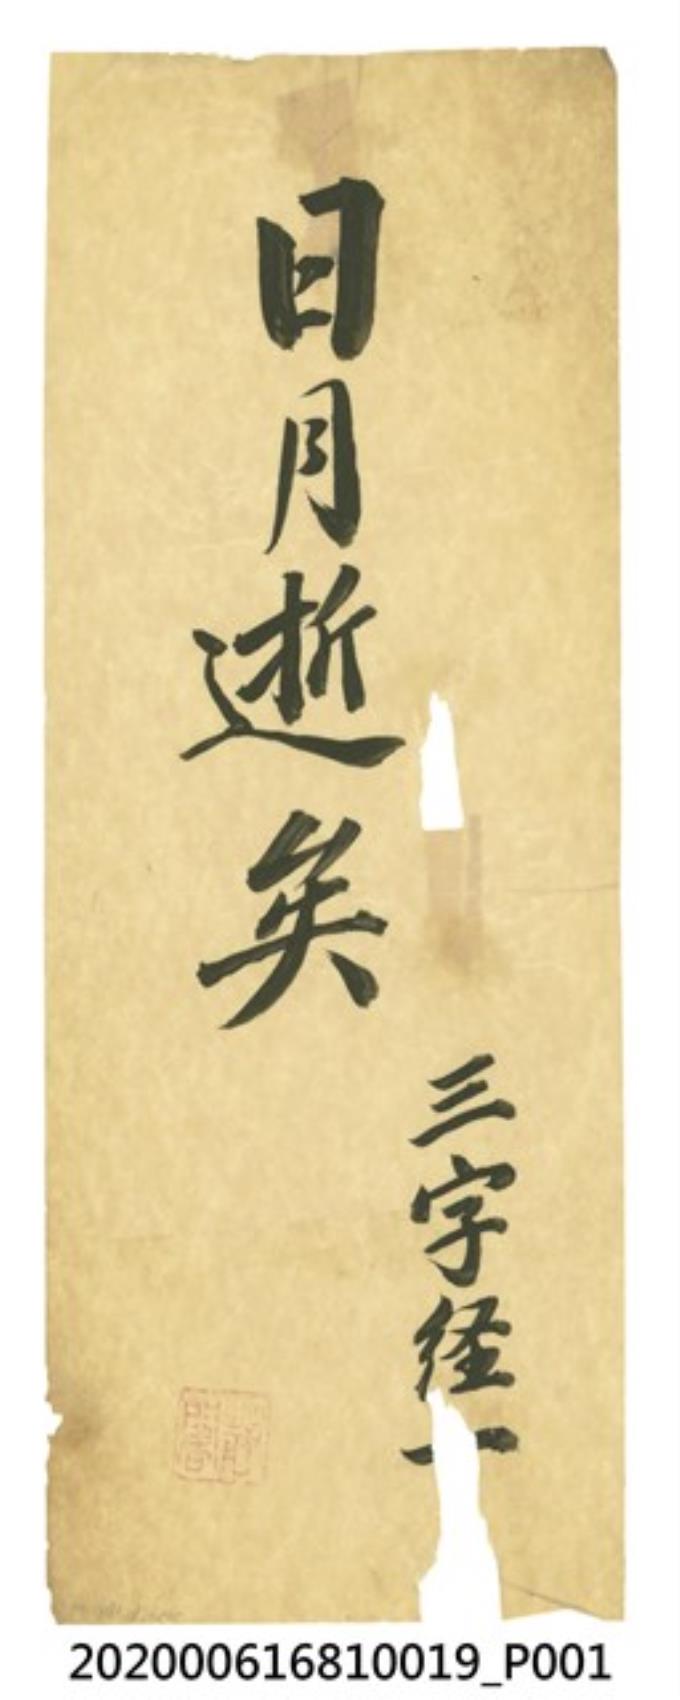 日月逝矣
三字経一
202000616810019_P001